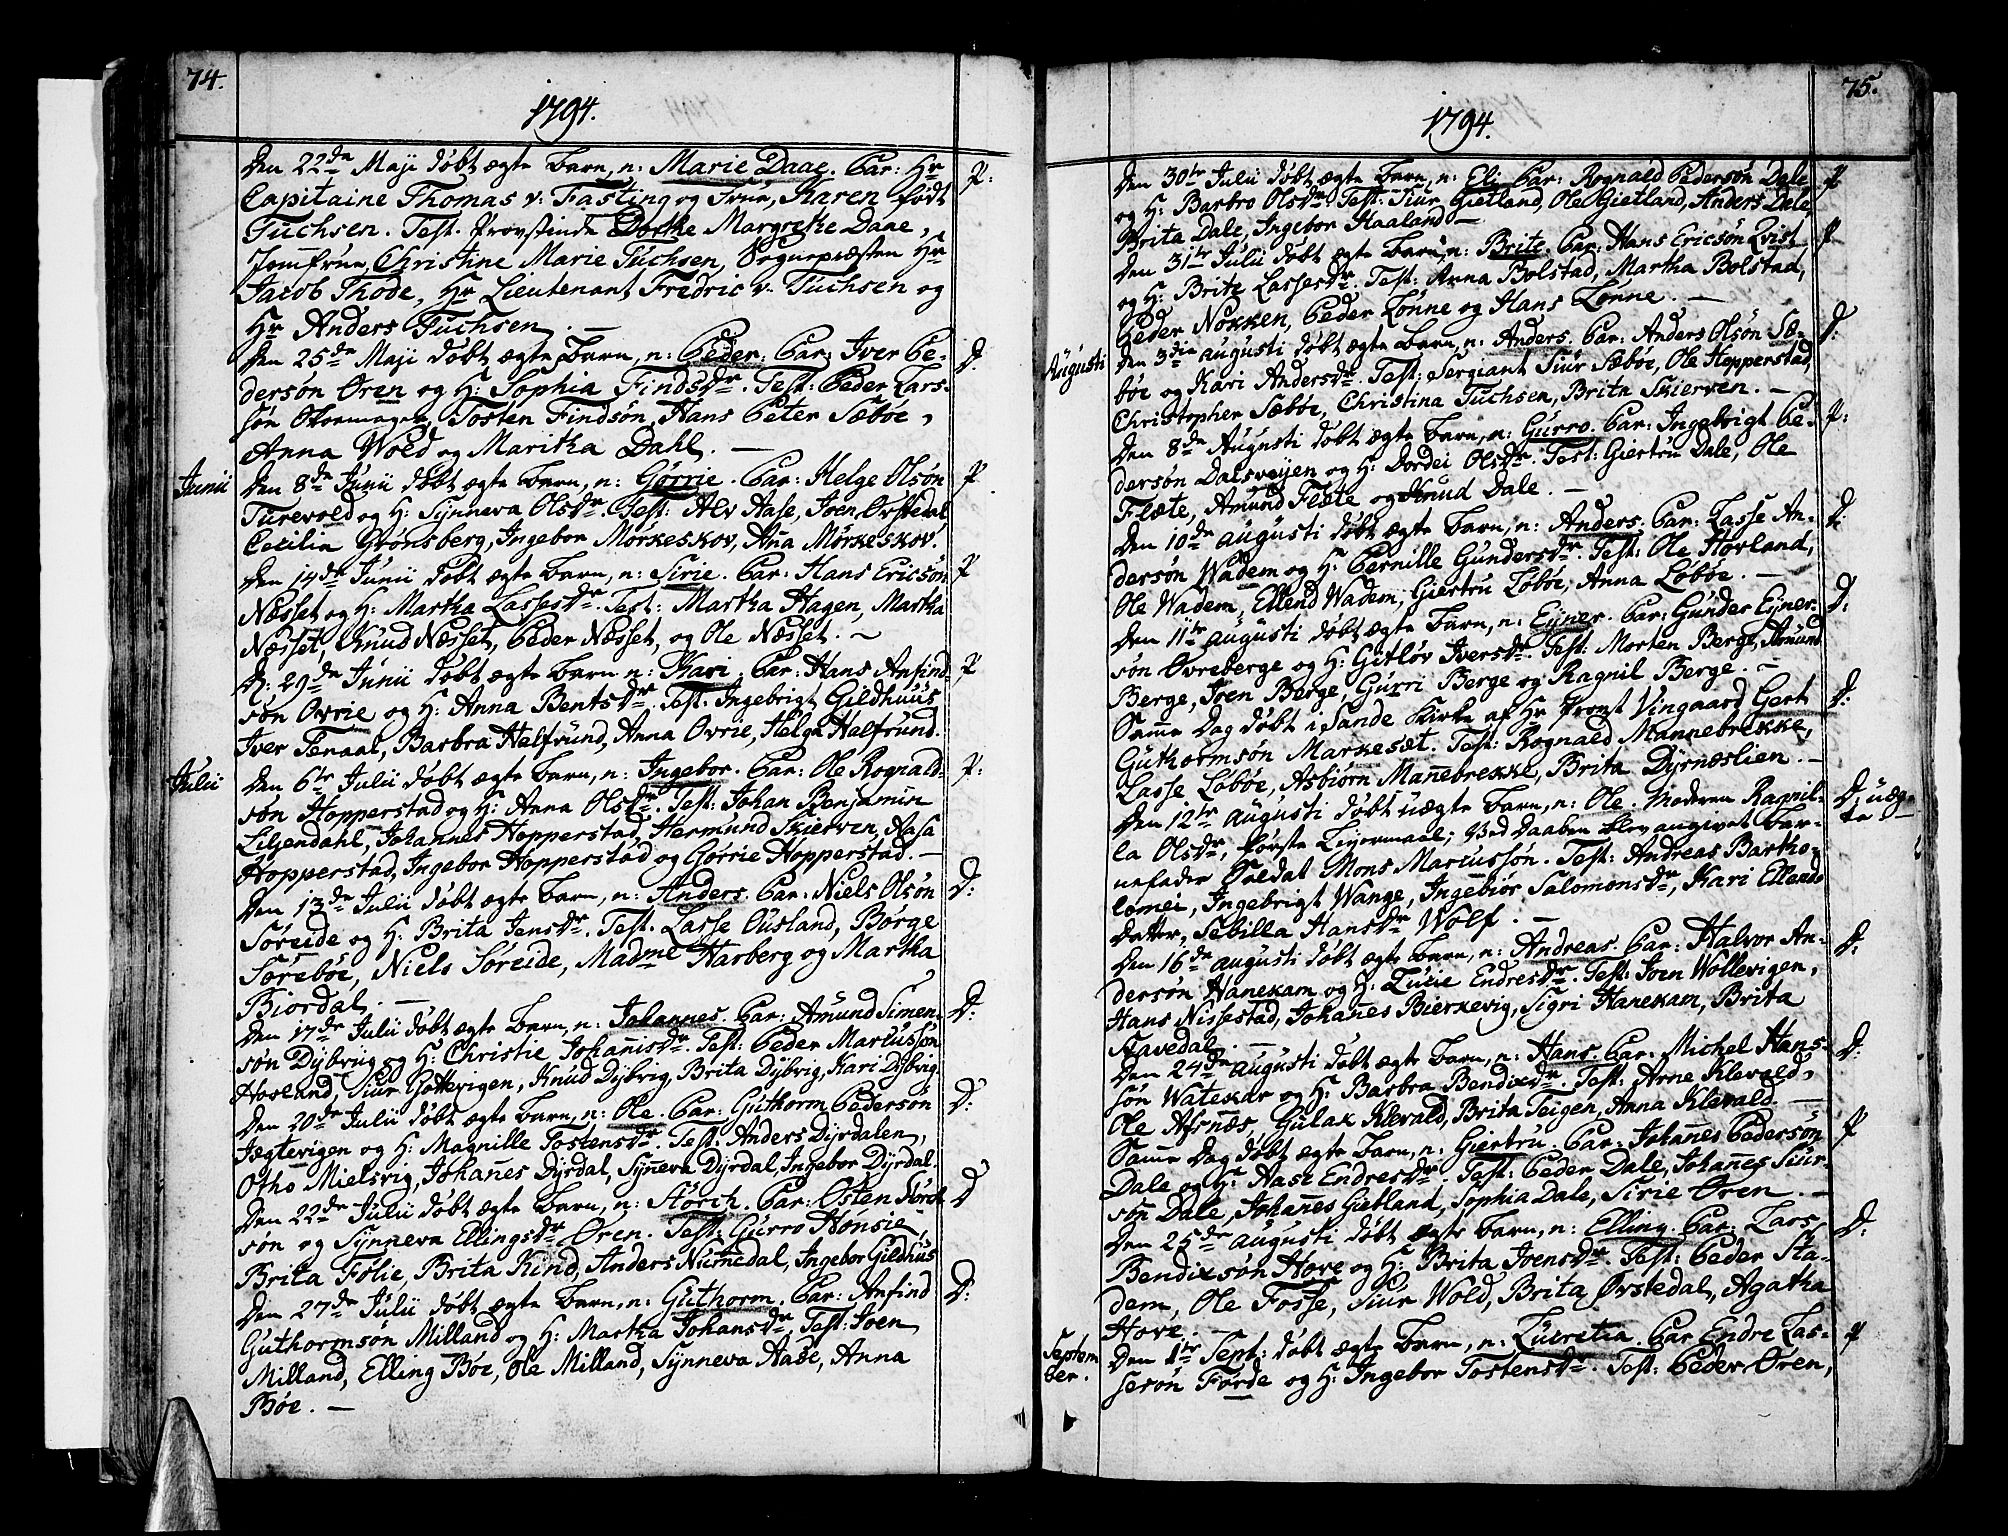 74.
1794.
Den 22de Maji døbt ægte Barn, n: Marie Daae. Par: Hr P:
Capitaine Thomas v: Fasting og Frue, Karen født
Tuchsen. Test. Provstinde Dorthe Margrethe Daae,
Jomfrue Christine Marie Tuchsen, Sognepræsten Hr
Jacob Thode, Hr Lieutenant Fredric v. Tuchsen og
Hr Anders Tuchsen. —
Den 25de Maji døbt ægte Barn, n: Peder. Par: Iver Pe- D.
dersøn Øren og H: Sophia Findsdr. Test: Peder Lars-
søn Tosten Findsøn, Hans Peter Sæbøe,
Anna Wold og Maritha Dahl. —
Junii
Den 8de Junii døbt ægte Barn, n: Gørrie. Par: Helge Olsøn P.
Turevold og H: Synneva Olsdr. Test: Alv Aase, Joen Ørstedal
Cecilia Grønsberg, Ingebor Mørkeskov, Aña Mørkeskov.
Den 14de Junii døbt ægte Barn, n: Sirie. Par: Hans Ericsøn P
Næsset og H: Martha Lassesdr. Test: Martha Hagen, Martha
Næsset, Knud Næsset, Peder Næsset, og Ole Næsset. —
D: 29de Junii døbt ægte Barn n: Kari. Par: Hans Anfind- P
søn Ovrie og H: Anna Bentsdr. Test: Ingebrigt Gildhuus
Iver Tenaal, Barbra Halfrund, Anna Ovrie, Helga Halfrund.
Julii
Den 6te Julii døbt ægte Barn, n: Ingebor. Par: Ole Rognald- P:
søn Hopperstad og H: Anna Olsdr. Test: Johan Benjamin
Liljendahl, Johannes Hopperstad, Hermund Skierven, Aasa
Hopperstad, Ingebor Hopperstad og Gørrie Hopperstad. —
Den 13de Julii døbt ægte Barn, n: Anders. Par: Niels Olsøn D:
Søreide og H: Brita Jensdr. Test. Lasse Ousland, Børge
Sørebøe, Niels Søreide, Madme Harberg og Martha
Biordal. —
Den 17de Julii døbt ægte Barn, n: Johannes. Par: Amund Simen- D:
søn Dybvig og H: Christie Johañisdr. Test: Peder Marcussøn
Hovland, Siur Gottevigen, Knud Dybvig, Brita Dybvig, Kari Dybvig
Den 20de Julii døbt ægte Barn, n: Ole. Par: Guthorm Pedersøn D:
Jegtevigen og H: Magnille Tostensdr. Test: Anders Dyrdalen,
Otho Mielsvig, Johañes Dyrdal, Syñeva Dyrdal, Ingebor Dyrdal.
Den 22de Julii døbt ægte Barn, n: Størch. Par: Østen Størch D
søn og Synneva Ellingsdr Øren. Test: Gurro Hønsie,
Brita Følie, Brita Kind, Anders Nummedal, Ingebor Gildhus
Den 27de Julii døbt ægte Barn, n: Guthorm. Par: Anfind D:
Guthormsøn Milland og H: Martha Johansdr. Test: Joen
Milland, Elling Bøe, Ole Milland, Synneva Aase, Anna
Bøe. —
75.
1794.
Den 30te Julii døbt ægte Barn, n: Eli Par: Rognald Pedersøn Dale P
og H: Barbro Olsdr Test: Siur Gietland, Ole Gietland, Anders Dale,
Brita Dale, Ingebor Haaland —
Den 31te Julii døbt ægte Barn, n: Brite. Par: Hans Ericsøn Qvist P
og H: Brite Lassesdr. Test: Anna Bolstad, Martha Bolstad,
Peder Nokken, Peder Lønne og Hans Lønne. —
Augusti
Den 3die Augusti døbt ægte Barn, n: Anders. Par: Anders Olsøn Sæ- D:
bøe og Kari Andersdr. Test: Sergiant Siur Sæbøe, Ole Hopperstad,
Christopher Sæbøe, Christina Tuchsen, Brita Skierven. —
Den 8de Augusti døbt ægte Barn, n: Gurro. Par: Ingebrigt Pe- P:
dersøn Dalsvejen og H: Dordei Olsdr. Test: Giertru Dale, Ole
Flæte, Amund Flæte og Knud Dale. —
Den 10de Augusti døbt ægte Barn, n: Anders. Par: Lasse An- D:
dersøn Wadem og H: Pernille Gundersdr. Test: Ole Hovland,
Ole Wadem, Ellend Wadem, Giertru Løbøe, Anna Løbøe. —
Den 11te Augusti døbt ægte Barn, n: Eyner. Par: Gunder Eyner- D:
søn Øvreberge og H: Gitløv Iversdr. Test: Morten Berge, Amund
Berge, Joen Berge, Gurri Berge og Ragnil Berge. —
Samme Dag døbt i Sande Kirke af Hr Provst Vingaard Gert D:
Guthormsøn Markesæt. Test: Rognald Mannebrekke,
Lasse Løbøe, Asbiørn Mañebrekke, Brita Dyrnæslien. —
Den 12te Augusti døbt uægte Barn, n: Ole. Moderen Ragnil- D: uæg-
la Olsdr, første Leyermaal; Ved Daaben blev angivet Bar- te —
nefader Mons Marcussøn. Test: Andreas Bartho-
lomei, Ingebrigt Wange, Ingebiør Salomonsdr, Kari Ellends
Datter, Sebilla Hansdr Wolf. —
Den 16de Augusti døbt ægte Barn, n: Andreas. Par: Halvor An- D:
dersøn Hanekam og H: Lucie Endresdr. Test: Joen Wollevigen,
Hans Nissestad, Johañes Bierkevig, Sigri Hanekam, Brita
Stavedal. —
Den 24de Augusti døbt ægte Barn, n: Hans. Par: Michel Hans- D:
søn Watekar og H: Barbra Bendixdr. Test: Arne Klevald,
Ole Afsnæs, Gulak Klevald, Brita Teigen, Anna Klevald. —
Samme Dag døbt ægte Barn, n: Giertru. Par: Johañes Pedersøn P
Dale og H: Aase Endresdr. Test: Peder Dale, Johañes Siur-
søn Dale, Johañes Gietland, Sophia Dale, Sirie Øren. —
Den 25de Augusti døbt ægte Barn, n: Elling. Par: Lars D:
Bendixsøn Hove og H: Brita Joensdr. Test: Peder Sta-
dem, Ole Fosse, Siur Wold, Brita Ørstedal, Agatha
Hove. —
Septem
ber.
Den 1te Sept: døbt ægte Barn, n: Lucretia. Par Endre Las- P
sesøn Førde og H: Ingebor Tostensdr. Test: Peder Øren,